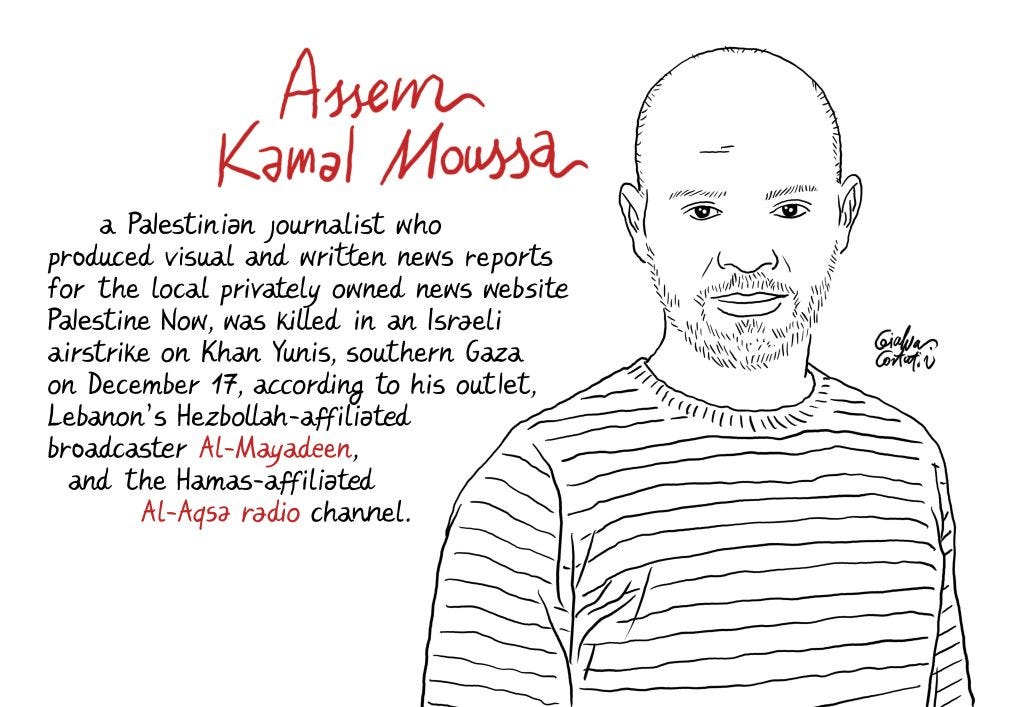 Assem
Kamal Moussa
a Palestinian journalist who
produced visual and written news reports
for the local privately owned news website
Palestine Now, was killed in an Israeli
airstrike on Khan Yunis, southern Gaza
on December 17, according to his outlet,
Lebanon's Hezbollah-affiliated
broadcaster Al-Mayadeen,
and the Hamas-affiliated
Al-Aqsa radio channel.